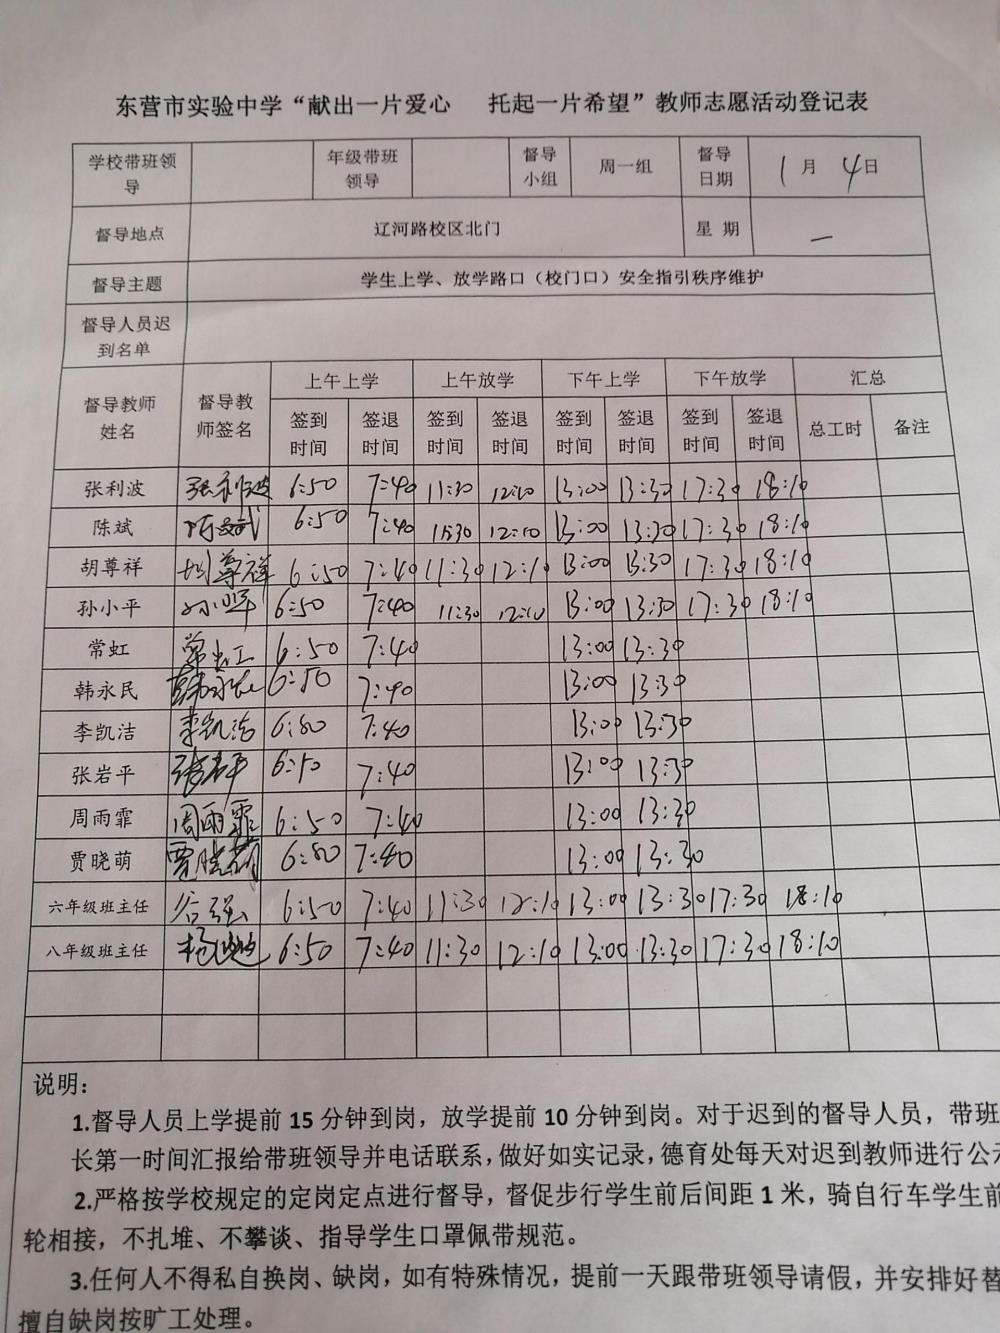 东营市实验中学“献出一片爱心 托起一片希望”教师志愿活动登记表
学校带班领导 年级带班领导 督导小组 周一组 督导日期 1月4日
督导地点 辽河路校区北门 星期 一
督导主题 学生上学、放学路口（校门口）安全指引秩序维护
督导人员迟到名单
督导教师姓名 督导教师签名 上午上学 上午放学 下午上学 下午放学 汇总
签到时间 签退时间 签到时间 签退时间 签到时间 签退时间 签到时间 签退时间 总工时 备注
张利波 张利波 6:50 7:40 11:30 12:10 13:00 13:30 17:30 18:10
陈斌 陈斌 6:50 7:40 11:30 12:10 13:00 13:30 17:30 18:10
胡尊祥 胡尊祥 6:50 7:40 11:30 12:10 13:00 13:30 17:30 18:10
孙小平 孙小平 6:50 7:40 11:30 12:10 13:00 13:30 17:30 18:10
常虹 常虹 6:50 7:40 13:00 13:30
韩永民 韩永民 6:50 7:40 13:00 13:30
李凯洁 李凯洁 6:50 7:40 13:00 13:30
张岩平 张岩平 6:50 7:40 13:00 13:30
周雨霏 周雨霏 6:50 7:40 13:00 13:30
贾晓萌 贾晓萌 6:50 7:40 13:00 13:30
六年级班主任 谷强 6:50 7:40 11:30 12:10 13:00 13:30 17:30 18:10
八年级班主任 杨 6:50 7:40 11:30 12:10 13:00 13:30 17:30 18:10
说明：
1.督导人员上学提前15分钟到岗，放学提前10分钟到岗。对于迟到的督导人员，带班
长第一时间汇报给带班领导并电话联系，做好如实记录，德育处每天对迟到教师进行公
2.严格按学校规定的定岗定点进行督导，督促步行学生前后间距1米，骑自行车学生前
轮相接，不扎堆、不攀谈、指导学生口罩佩带规范。
3.任何人不得私自换岗、缺岗，如有特殊情况，提前一天跟带班领导请假，并安排好替
擅自缺岗按旷工处理。